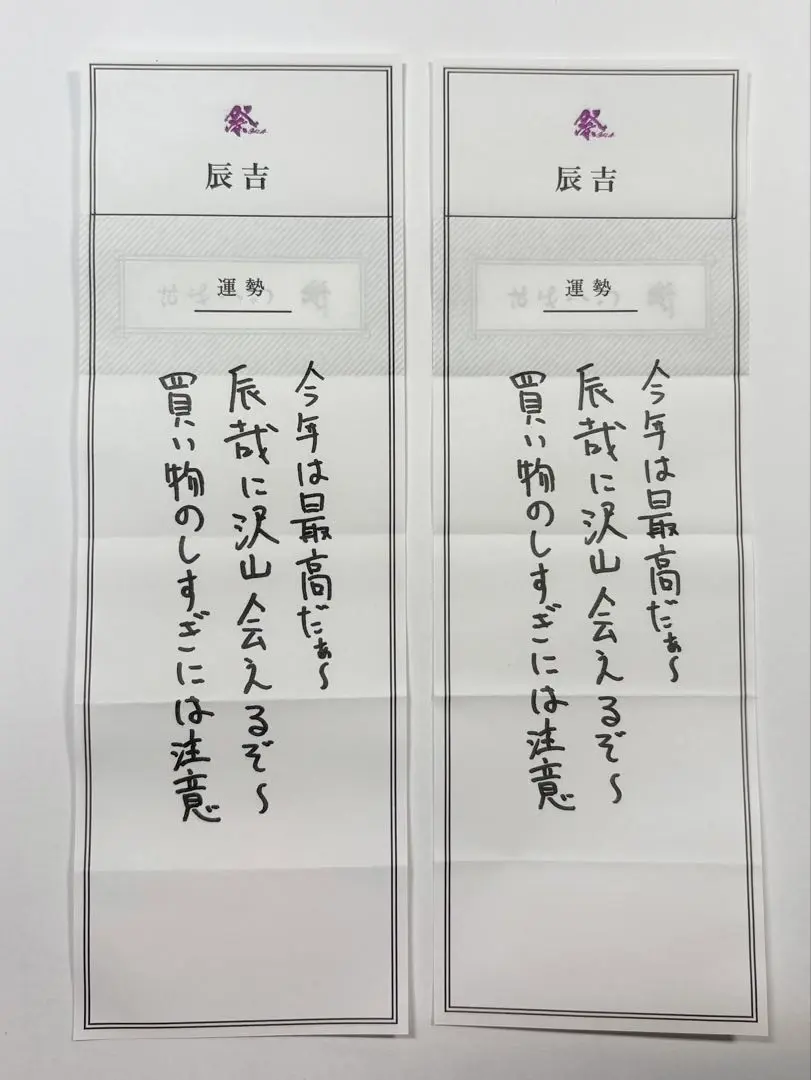 祭
辰吉
運勢
今年は最高だぁ〜
辰哉に沢山会えるぞ〜
買い物のしすぎには注意
祭
辰吉
運勢
今年は最高だぁ〜
辰哉に沢山会えるぞ〜
買い物のしすぎには注意